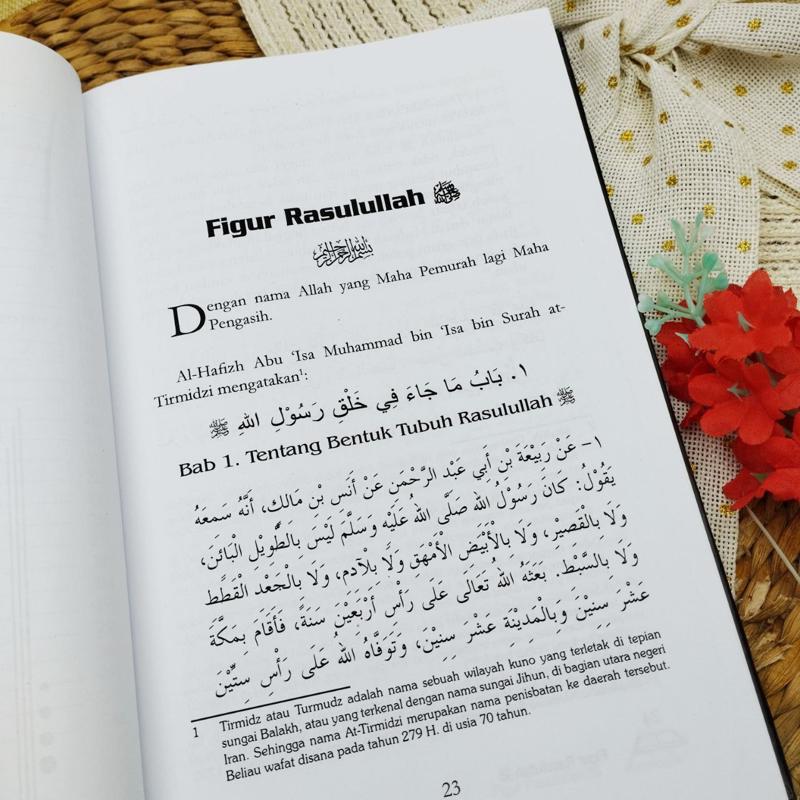 Figur Rasulullah ﷺ
بسم الله الرحمن الرحيم
Dengan nama Allah yang Maha Pemurah lagi Maha
Pengasih.
Al-Hafizh Abu ‘Isa Muhammad bin ‘Isa bin Surah at-
Tirmidzi mengatakan¹:
١. بَابُ مَا جَاءَ فِي خَلْقِ رَسُوْلِ اللهِ ﷺ
Bab 1. Tentang Bentuk Tubuh Rasulullah ﷺ
١- عَنْ رَبِيْعَةَ بْنِ أَبِي عَبْدِ الرَّحْمَنِ عَنْ أَنَسِ بْنِ مَالِكٍ، أَنَّهُ سَمِعَهُ
يَقُوْلُ: كَانَ رَسُوْلُ اللهِ صَلَّى اللهُ عَلَيْهِ وَسَلَّمَ لَيْسَ بِالطَّوِيْلِ الْبَائِنِ،
وَلَا بِالْقَصِيْرِ، وَلَا بِالْأَبْيَضِ الْأَمْهَقِ وَلَا بِلْآدَمِ، وَلَا بِالْجَعْدِ الْقَطَطِ
وَلَا بِالسَّبْطِ. بَعَثَهُ اللهُ تَعَالَى عَلَى رَأْسِ أَرْبَعِيْنَ سَنَةً، فَأَقَامَ بِمَكَّةَ
عَشْرَ سِنِيْنَ وَبِالْمَدِيْنَةِ عَشْرَ سِنِيْنَ، وَتَوَفَّاهُ اللهُ عَلَى رَأْسِ سِتِّيْنَ
1 Tirmidz atau Turmudz adalah nama sebuah wilayah kuno yang terletak di tepian
sungai Balakh, atau yang terkenal dengan nama sungai Jihun, di bagian utara negeri
Iran. Sehingga nama At-Tirmidzi merupakan nama penisbatan ke daerah tersebut.
Beliau wafat disana pada tahun 279 H. di usia 70 tahun.
23